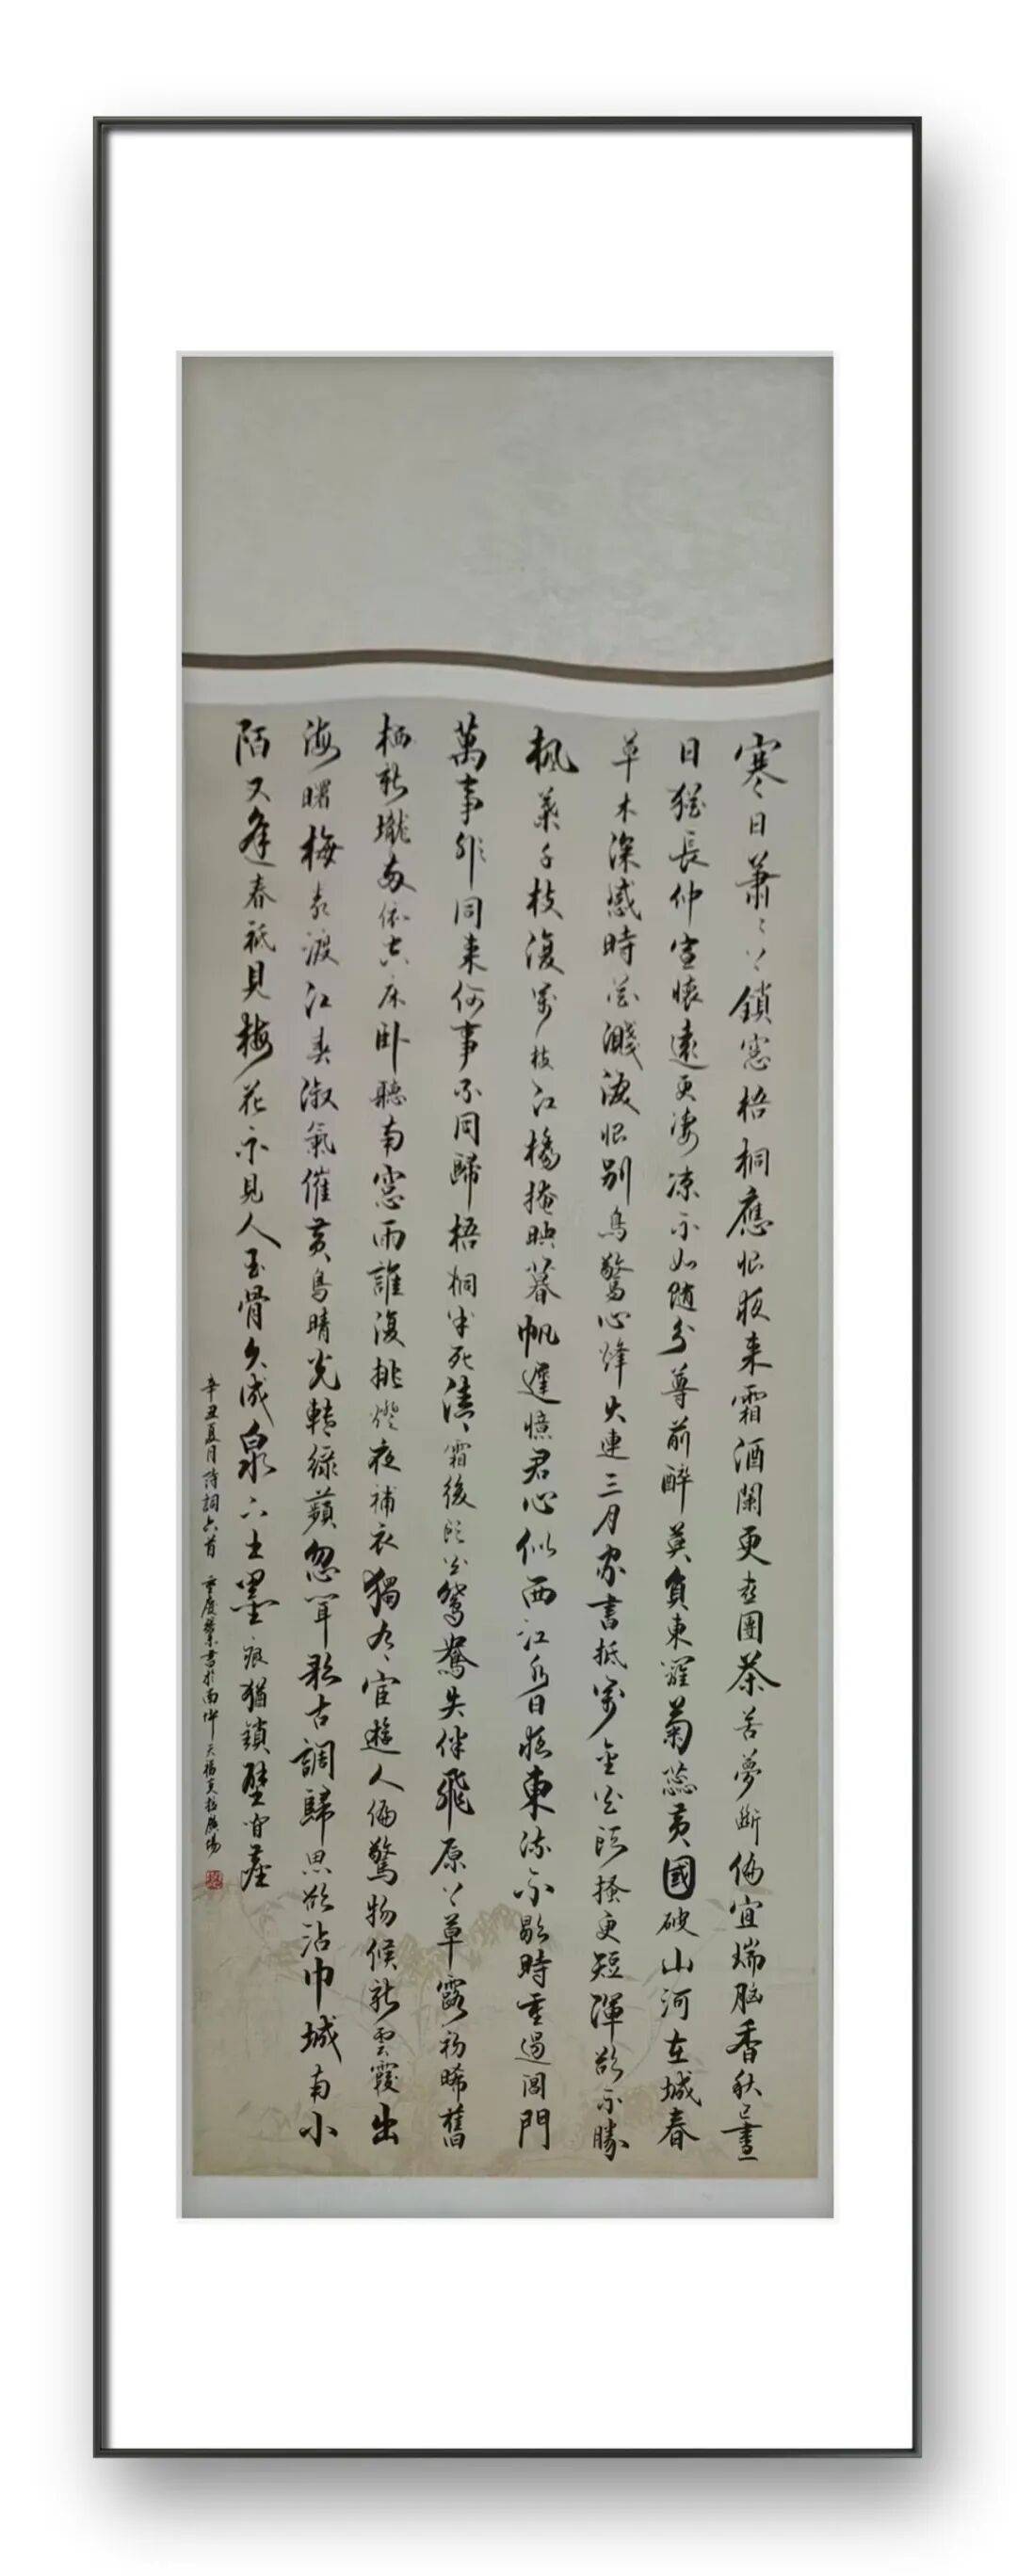 寒日萧〻〻鎖窓梧桐應恨夜来霜酒闌更喜團茶苦夢斷偏宜瑞脳香秋已盡
日猶長仲宣懐遠更凄凉不如随分尊前醉莫負東籬菊蕊黄國破山河在城春
草木深感時花濺淚恨别鳥驚心烽火連三月家書抵萬金白頭搔更短渾欲不勝
楓葉千枝復萬枝江橋掩映暮帆遲憶君心似西江水日夜東流不歇時重過閶門
萬事非同来何事不同歸梧桐半死清霜後頭白鴛鴦失伴飛原上草露初晞舊
栖新壠両依空床卧聽南窓雨誰復挑燈夜補衣獨有宦遊人偏驚物候新雲霞出
海曙梅柳渡江春淑氣催黄鳥晴光轉緑蘋忽聞歌古調歸思欲沾巾城南小
陌又逢春祇見梅花不見人玉骨久成泉下土墨痕猶鎖壁間塵
辛丑夏月詩詞六首 重慶 書於南坪